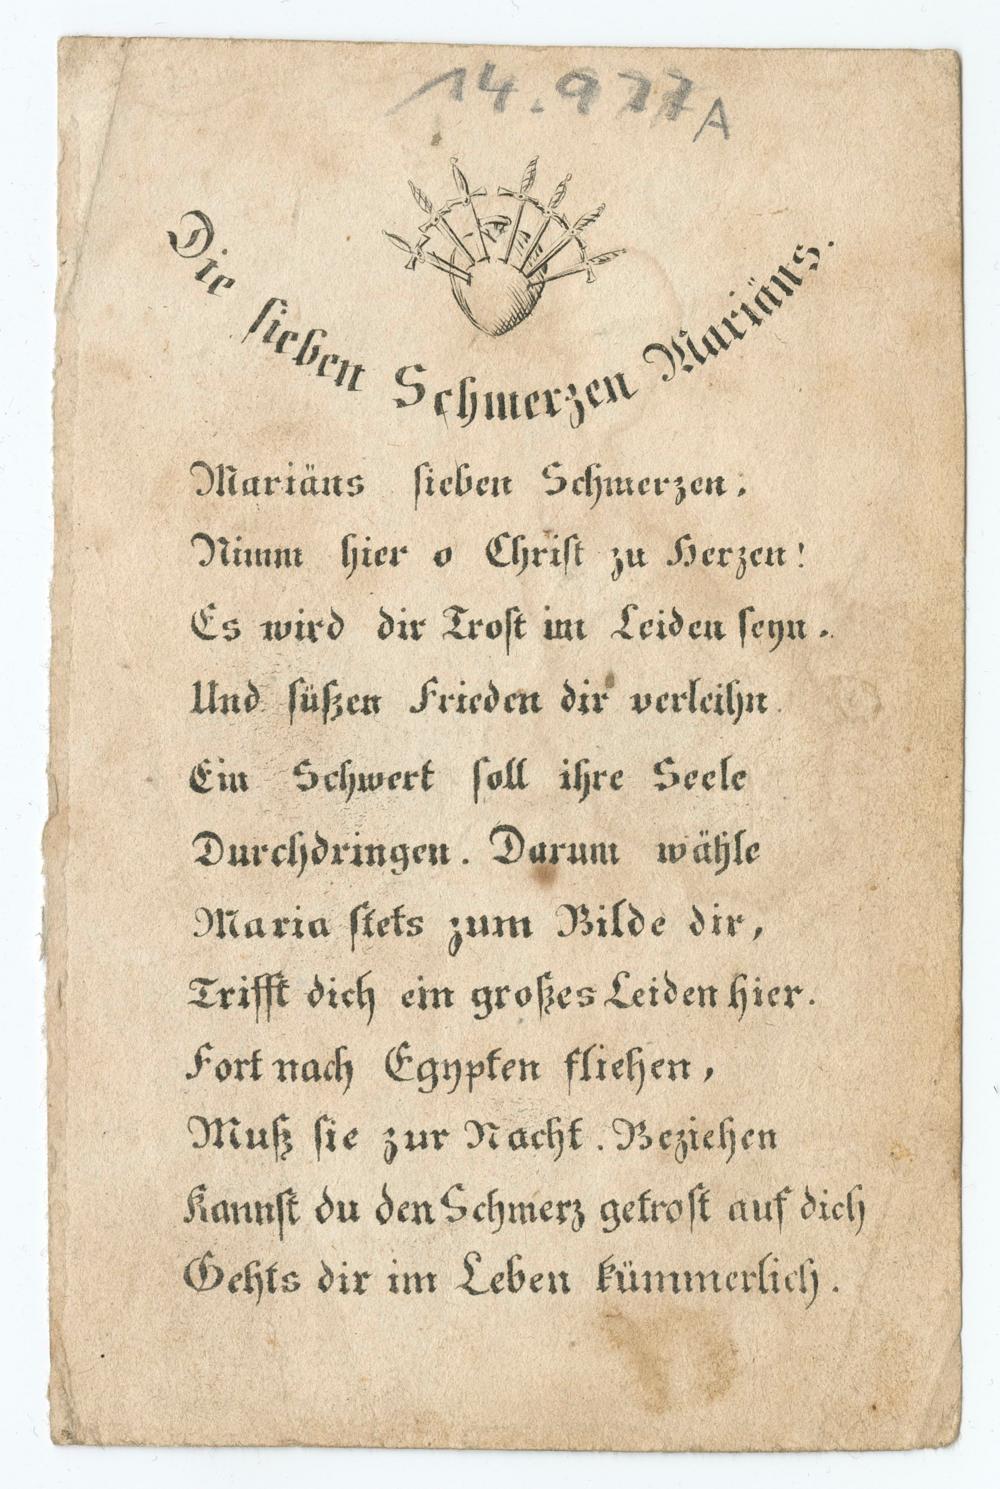 14.977A
Die sieben Schmerzen Mariäns.
Mariäns sieben Schmerzen,
Nimm hier o Christ zu Herzen!
Es wird dir Trost im Leiden seyn.
Und süßen Frieden dir verleihn.
Ein Schwert soll ihre Seele
Durchdringen. Darum wähle
Maria stets zum Bilde dir,
Trifft dich ein großes Leiden hier.
Fort nach Egypten fliehen,
Muß sie zur Nacht. Beziehen
Kannst du den Schmerz getrost auf dich
Gehts dir im Leben kümmerlich.